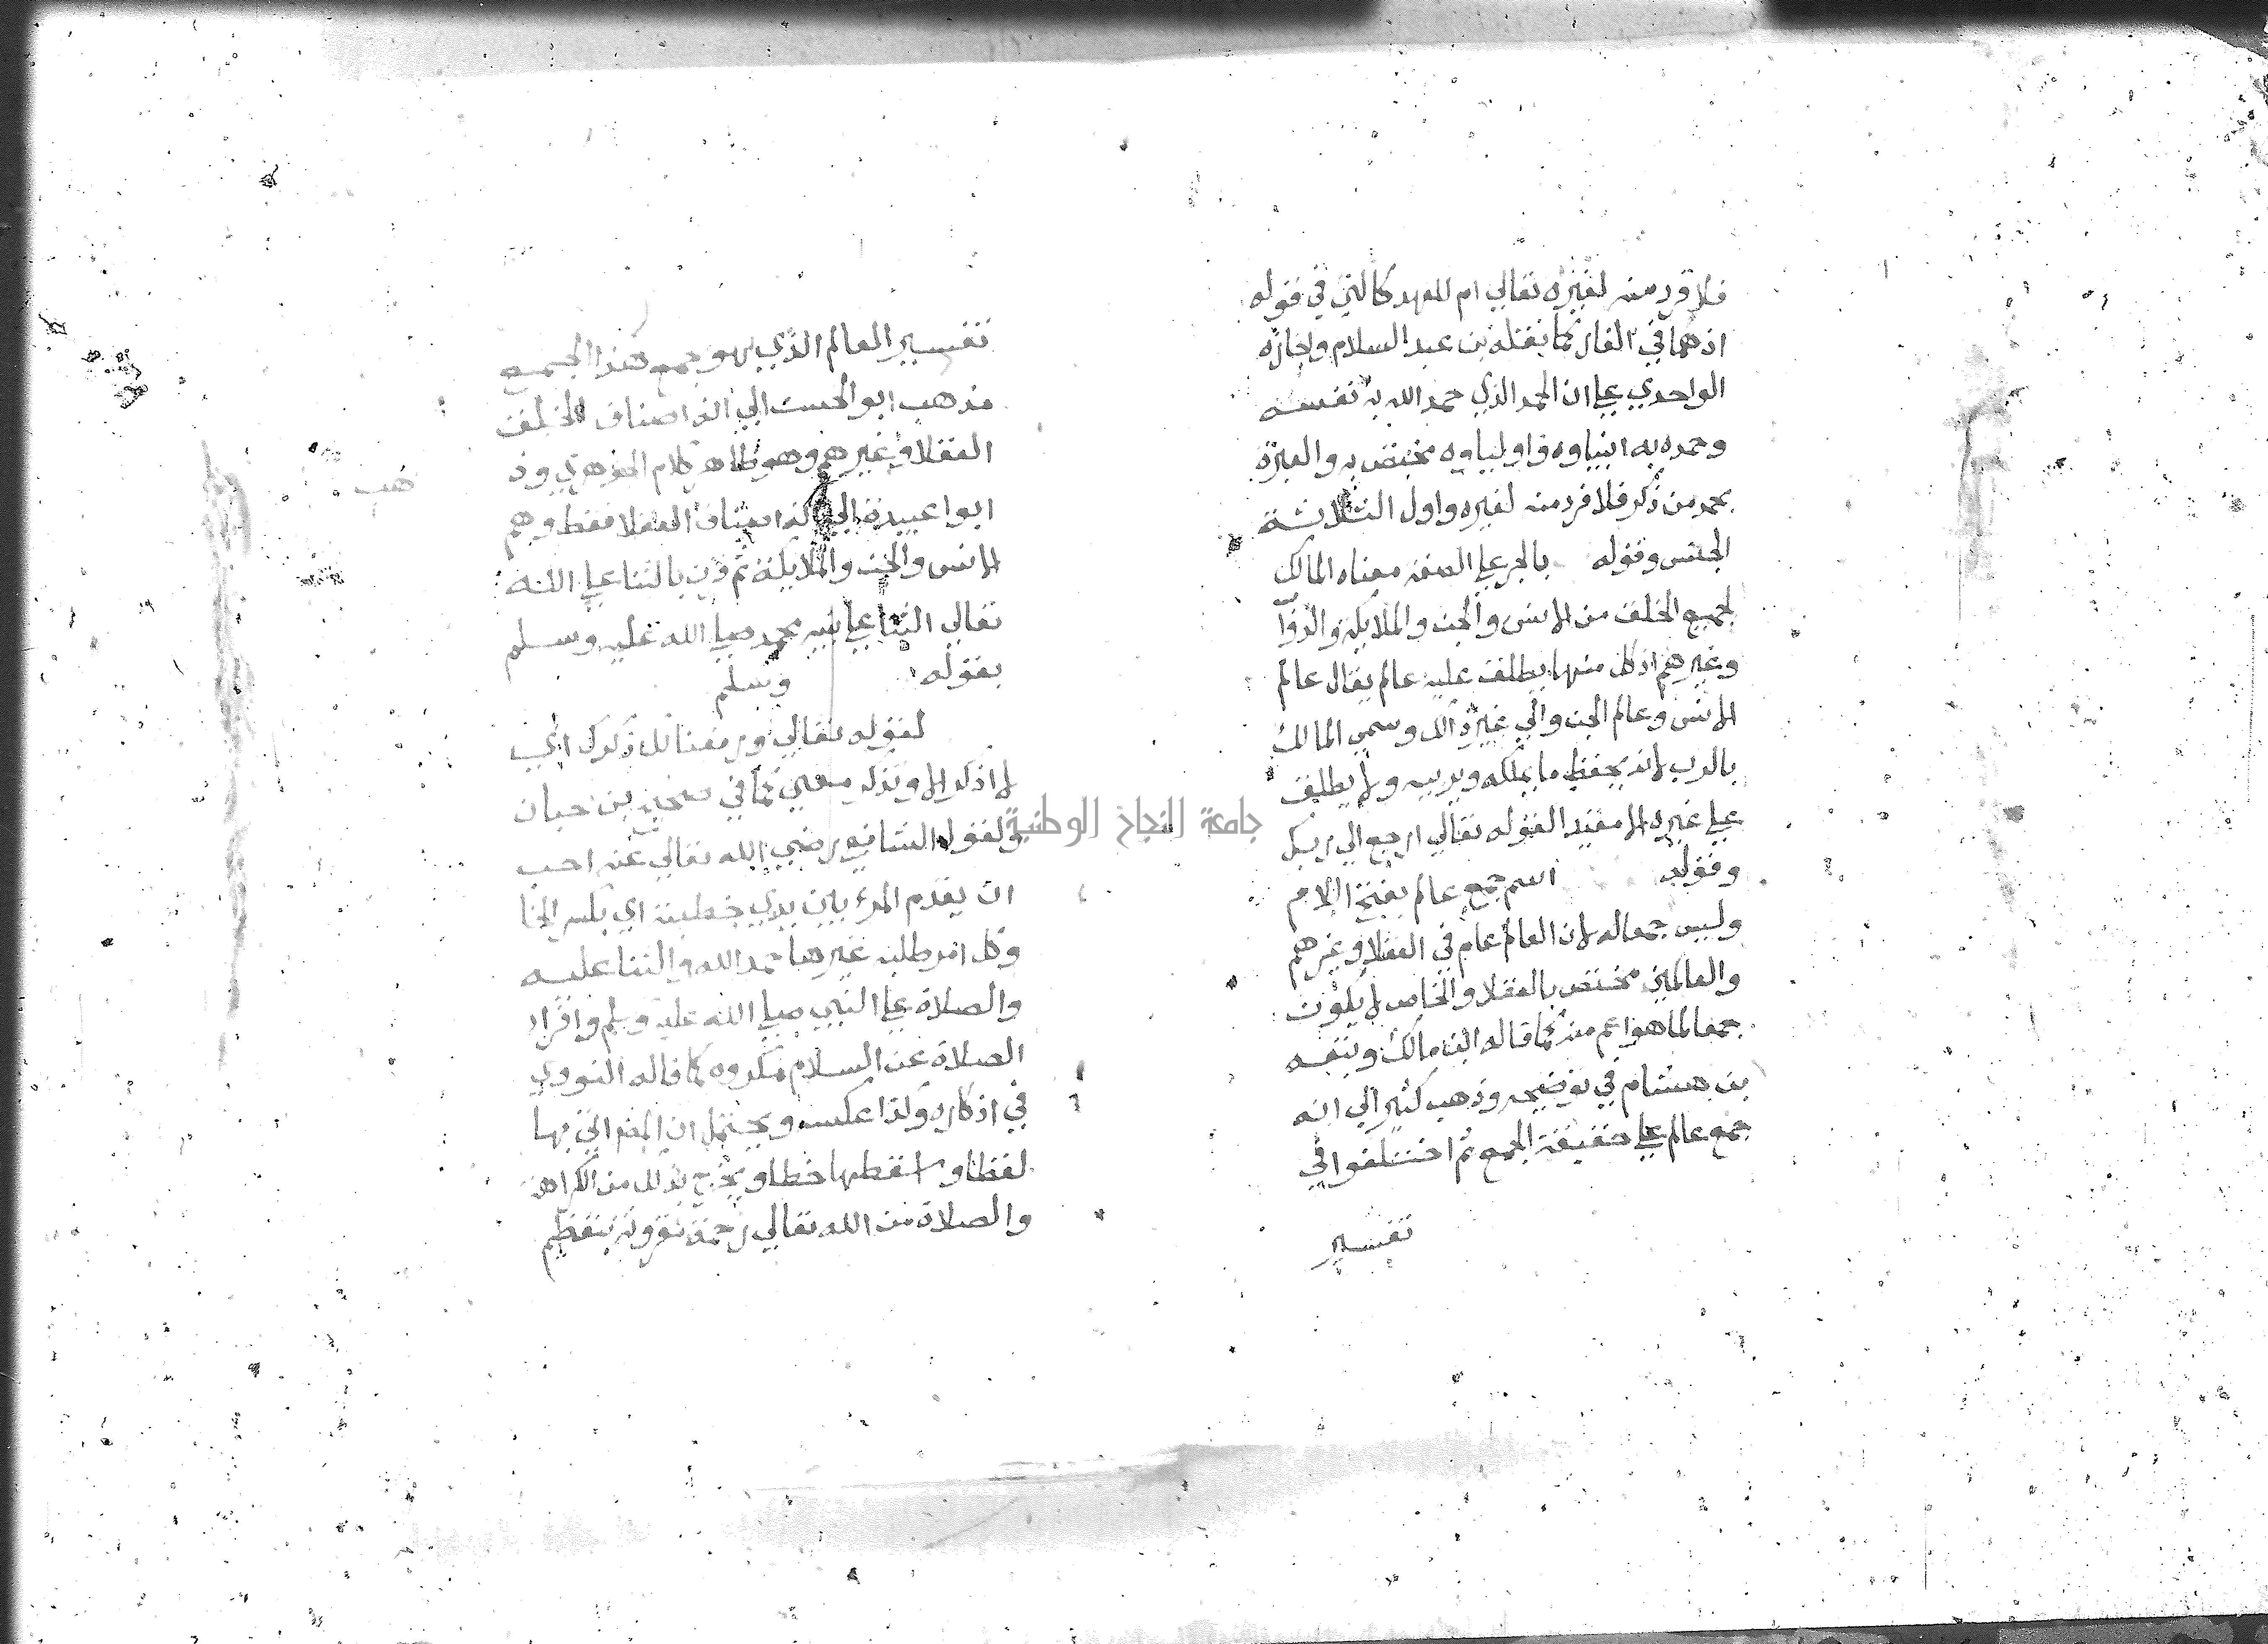 فلا فرد منه لغيره تعالي ام للعهد كالتي في قوله
اذ هما في الغار كما نقله بن عبد السلام واجازه
الواحدي علي ان الحمد الذي حمد الله به نفسه
وحمده به انبياوه واولياوه مختص به والعبرة
بحمد من ذكر فلا فرد منه لغيره واول الثلاثة
الجنس وقوله بالجر علي الصفه معناه المالك
لجميع الخلق من الانس والجن والملايكة والدوآ
وغيرهم اذ كل منها يطلق عليه عالم يقال عالم
الانس وعالم الجن والي غير ذالك وسمي المالك
بالرب لانه يحفظ ما يملكه ويربيه ولا يطلق
علي غيره الا مقيدا لقوله تعالي ارجع الي ربك
وقوله اسم جمع عالم بفتح اللام
وليس جمعا له لان العالم عام في العقلا وغيرهم
والعالمين مختص بالعقلا والخاص لا يكون
جمعا لما هو اعم منه كما قاله ابن مالك وتبعه
بن هشام في توضيحه وذهب كثير الي انه
جمع عالم علي حقيقة الجمع ثم اختلفوا في
تفسير
تفسير العالم الذي هو جمع هذا الجمع
فذهب ابو الحسن الي انه اصناف الخلق
العقلا وغيرهم وهو ظاهر كلام الجوهري وذ
هب
ابوا عبيدة الي انه اصناف العقلا فقط وهم
الانس والجن والملايكة ثم قرن بالثنا علي الله
تعالي الثنا علي نبيه محمد صلي الله عليه وسلم
بقوله وسلم
لقوله تعالي ورفعنا لك ذكرك اي
لا اذكر الا وتذكر معي كما في صحيح بن حبان
ولقول الشافعي رضي الله تعالي عنه احب
ان يقدم المرء بين يدي خطبته اي بكسر الخا
وكل امر طلبه غيرها حمد الله والثنا عليه
والصلاة علي النبي صلي الله عليه وسلم وافراد
الصلاة عن السلام مكروه كما قاله النووي
في اذكاره وكذا عكسه ويحتمل ان المص اتي بها
لفظا واسقطها خطا ويخرج بذلك من الكراهة
والصلاة من الله تعالي رحمة مقرونة بتعظيم
جامعة النجاح الوطنية